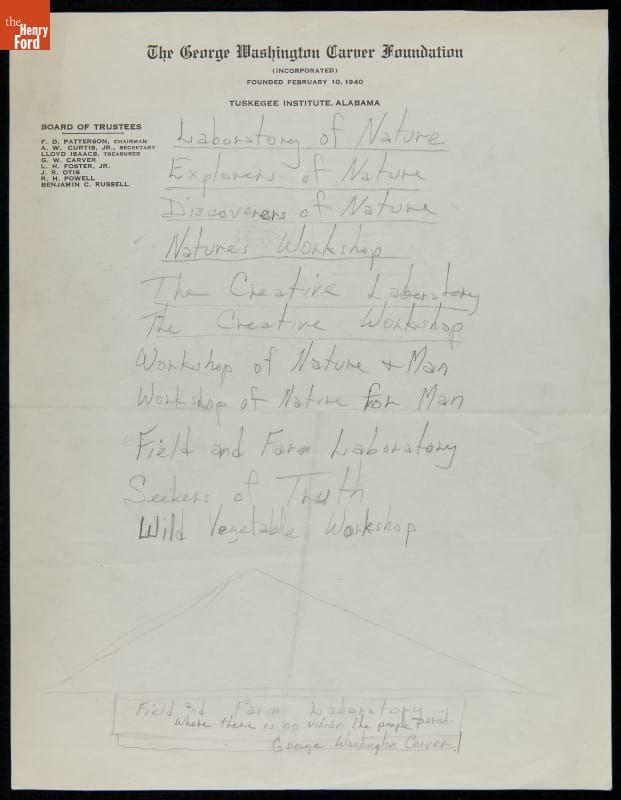 the
Henry
Ford
The George Washington Carver Foundation
(INCORPORATED)
FOUNDED FEBRUARY 10, 1940
TUSKEGEE INSTITUTE, ALABAMA
BOARD OF TRUSTEES
F. D. PATTERSON, CHAIRMAN
A. W. CURTIS, JR., SECRETARY
LLOYD ISAACS, TREASURER
G. W. CARVER
L. H. FOSTER, JR.
J. R. OTIS
R. H. POWELL
BENJAMIN C. RUSSELL
Laboratory of Nature
Explorers of Nature
Discoverers of Nature
Nature's Workshop
The Creative Laboratory
The Creative Workshop
Workshop of Nature & Man
Workshop of Nature for Man
Field and Farm Laboratory
Seekers of Truth
Wild Vegetable Workshop
Field and Farm Laboratory
Where there is no vision the people perish.
George Washington Carver